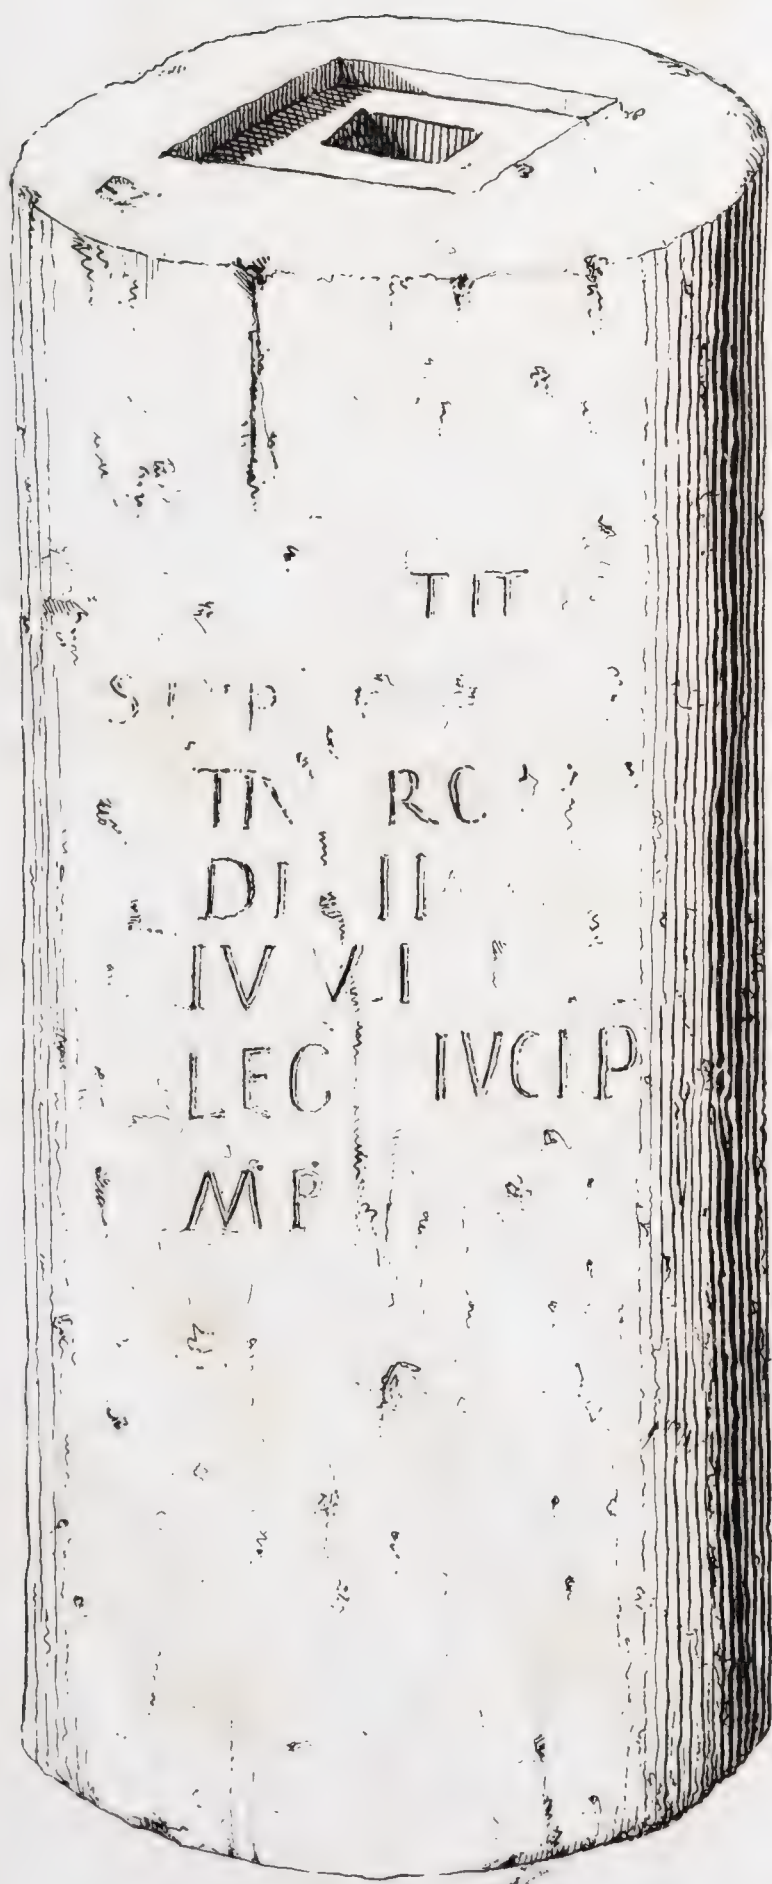 TIT
TR RC
DI II
IV VI
LEG IVCI P
MP